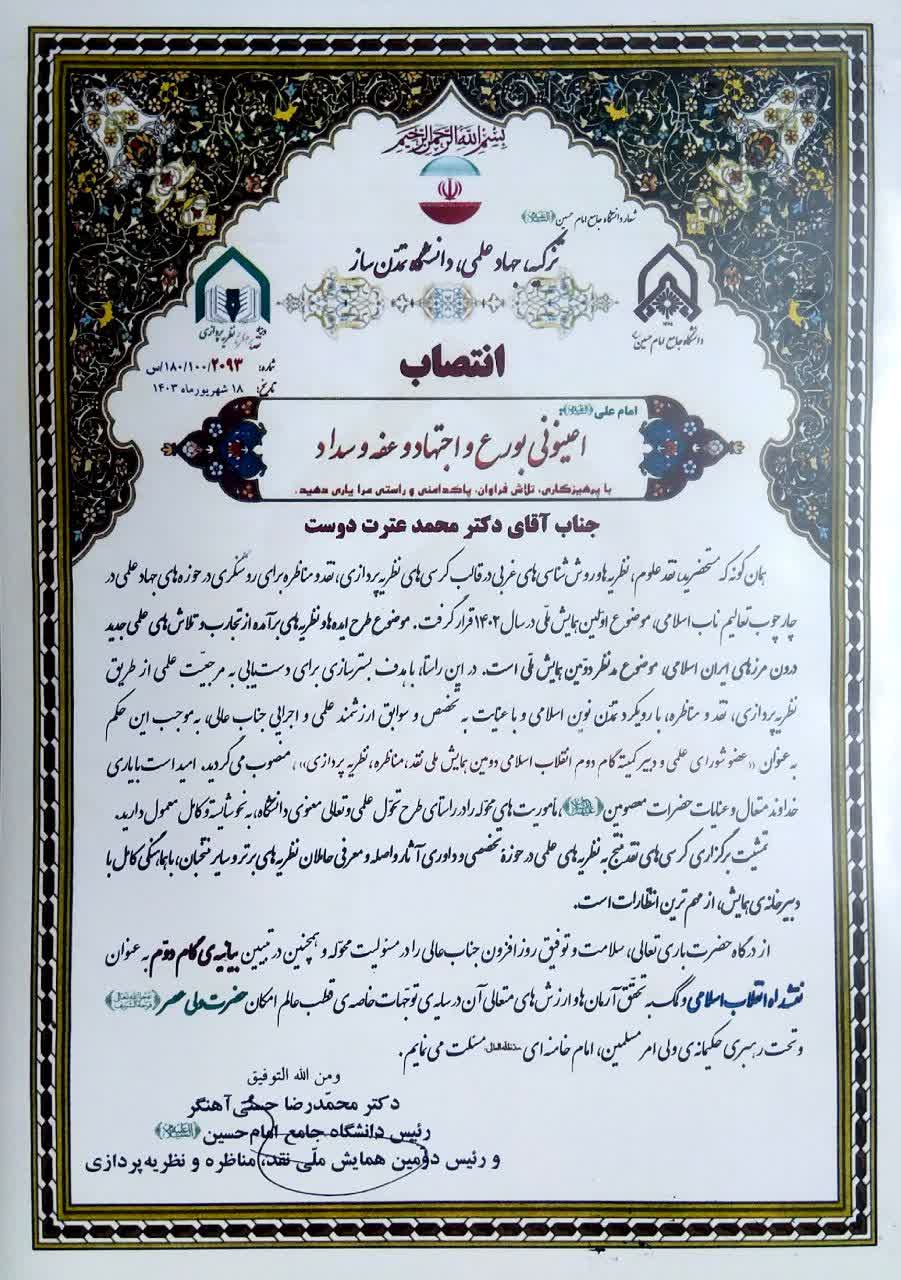 بسم الله الرحمن الرحیم
شعار دانشگاه جامع امام حسین
تزکیه، جهاد علمی، دانشگاه تمدن ساز
دانشگاه جامع امام حسین
نظریه پردازی
انتصاب
شماره: ۲۰۹۳/۱۰۰/۱۸۰/ص
تاریخ: ۱۸ شهریور ماه ۱۴۰۳
امام علی:
اعینونی بورع و اجتهاد و عفه و سداد
با پرهیزگاری، تلاش فراوان، پاکدامنی و راستی مرا یاری دهید.
جناب آقای دکتر محمد عترت دوست
همان گونه که مستحضرید، نقد علوم، نظریه ها و روش شناسی های غربی در قالب کرسی های نظریه پردازی، نقد و مناظره برای روشنگری در حوزه های جهاد علمی در
چارچوب تعالیم ناب اسلامی، موضوع اولین همایش ملّی در سال ۱۴۰۲ قرار گرفت. موضوع طرح ایده ها و نظریه های برآمده از تجارب و تلاش های علمی جدید
درون مرزهای ایران اسلامی، موضوع مدنظر دوّمین همایش ملّی است. در این راستا، با هدف بسترسازی برای دست یابی به مرجعیّت علمی از طریق
نظریه پردازی، نقد و مناظره، با رویکرد تمدّن نوین اسلامی و با عنایت به تخصّص و سوابق ارزشمند علمی و اجرایی جناب عالی، به موجب این حکم
به عنوان «عضو شورای علمی و دبیر کمیته گام دوم انقلاب اسلامی دومین همایش ملی نقد، مناظره، نظریه پردازی»، منصوب می گردید. امید است با یاری
خداوند متعال و عنایات حضرات معصومین، مأموریت های محوّله را در راستای طرح تحوّل علمی و تعالی معنوی دانشگاه، به نحو شایسته و کامل معمول دارید.
تمشیت برگزاری کرسی های نقد منتج به نظریه های علمی در حوزهٔ تخصّصی و داوری آثار واصله و معرفی حاملان نظریه های برتر و سایر منتخبان، با هماهنگی کامل با
دبیرخانه ی همایش، از مهم ترین انتظارات است.
از درگاه حضرت باری تعالی، سلامت و توفیق روزافزون جناب عالی را در مسئولیت محوّله و همچنین در تبیین بیانیه ی گام دوّم به عنوان
نقشه راه انقلاب اسلامی و کمک به تحقّق آرمان ها و ارزش های متعالی آن در سایه ی توجّهات خاصه ی قطب عالم امکان حضرت ولی عصر
و تحت رهبری حکیمانه ی ولی امر مسلمین، امام خامنه ای مسئلت می نمایم.
ومن الله التوفیق
دکتر محمّدرضا حسنی آهنگر
رئیس دانشگاه جامع امام حسین
و رئیس دومین همایش ملّی نقد، مناظره و نظریه پردازی